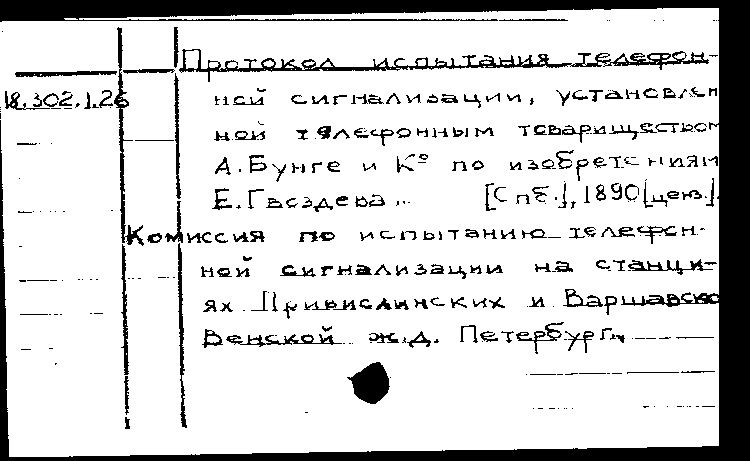 Протокол испытания телефон-
18.302.1.26 ной сигнализации, установлен
ной телефонным товариществом
А. Бунге и К° по изобретениям
Е. Гвоздева.. [Спб.], 1890 [ценз.].
Комиссия по испытанию телефон-
ной сигнализации на станци-
ях Привислинских и Варшавско
Венской ж.д. Петербург.